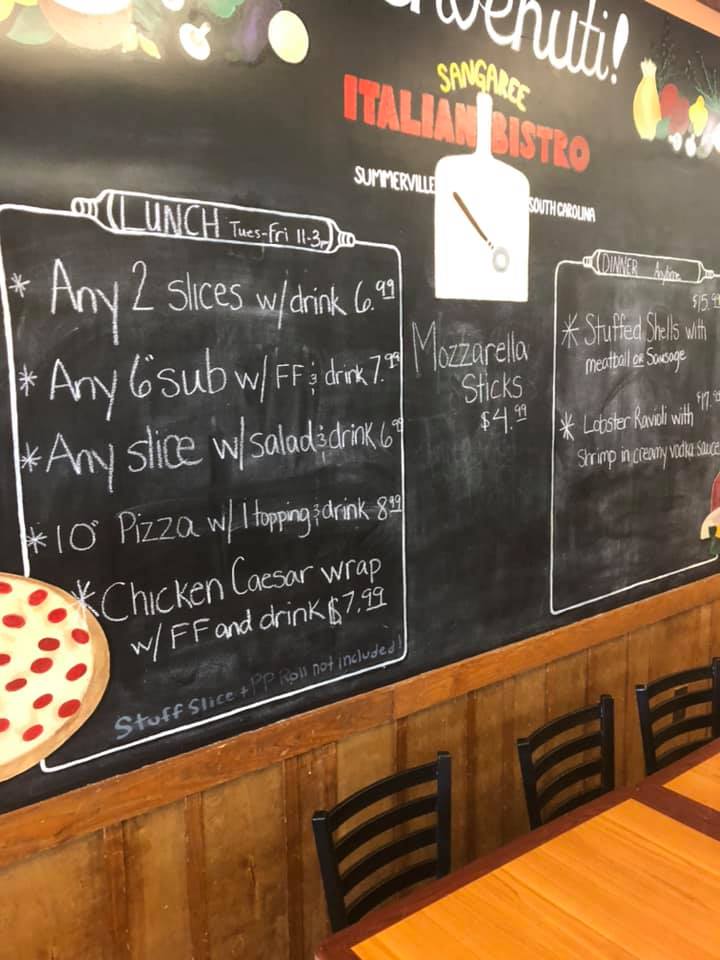 SANGAREE
ITALIAN BISTRO
SUMMERVILLE SOUTH CAROLINA
LUNCH Tues-Fri 11-3
* Any 2 slices w/drink 6.99
* Any 6" sub w/ FF & drink 7.99
* Any slice w/salad & drink 6.99
* 10" Pizza w/ 1 topping & drink 8.99
* Chicken Caesar wrap
w/ FF and drink $7.99
Stuff Slice + PP Roll not included!
Mozzarella
Sticks
$4.99
DINNER Anytime
* Stuffed Shells with
meatball or Sausage
* Lobster Ravioli with
Shrimp in creamy vodka sauce